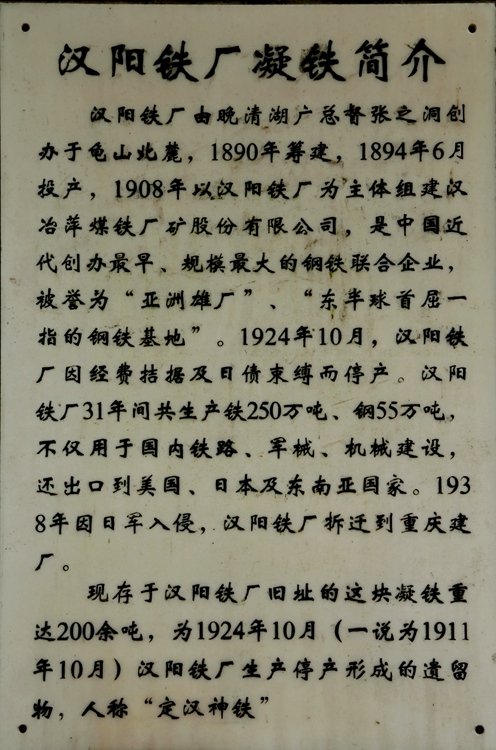 汉阳铁厂凝铁简介
汉阳铁厂由晚清湖广总督张之洞创
办于龟山北麓，1890年筹建，1894年6月
投产，1908年以汉阳铁厂为主体组建汉
冶萍煤铁厂矿股份有限公司，是中国近
代创办最早、规模最大的钢铁联合企业，
被誉为“亚洲雄厂”、“东半球首屈一
指的钢铁基地”。1924年10月，汉阳铁
厂因经费拮据及日债束缚而停产。汉阳
铁厂31年间共生产铁250万吨、钢55万吨，
不仅用于国内铁路、军械、机械建设，
还出口到美国、日本及东南亚国家。193
8年因日军入侵，汉阳铁厂拆迁到重庆建
厂。
现存于汉阳铁厂旧址的这块凝铁重
达200余吨，为1924年10月（一说为1911
年10月）汉阳铁厂生产停产形成的遗留
物，人称“定汉神铁”